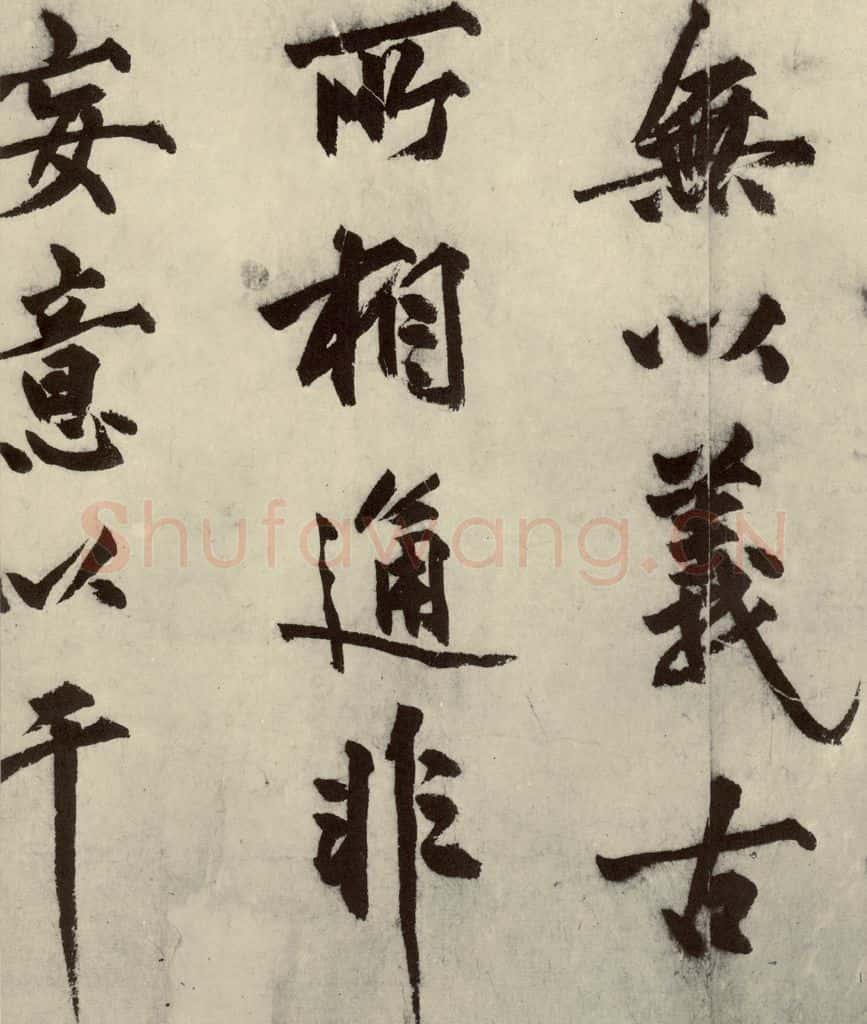 無以義古
所相通非
妄意以干
Shufawang.CN